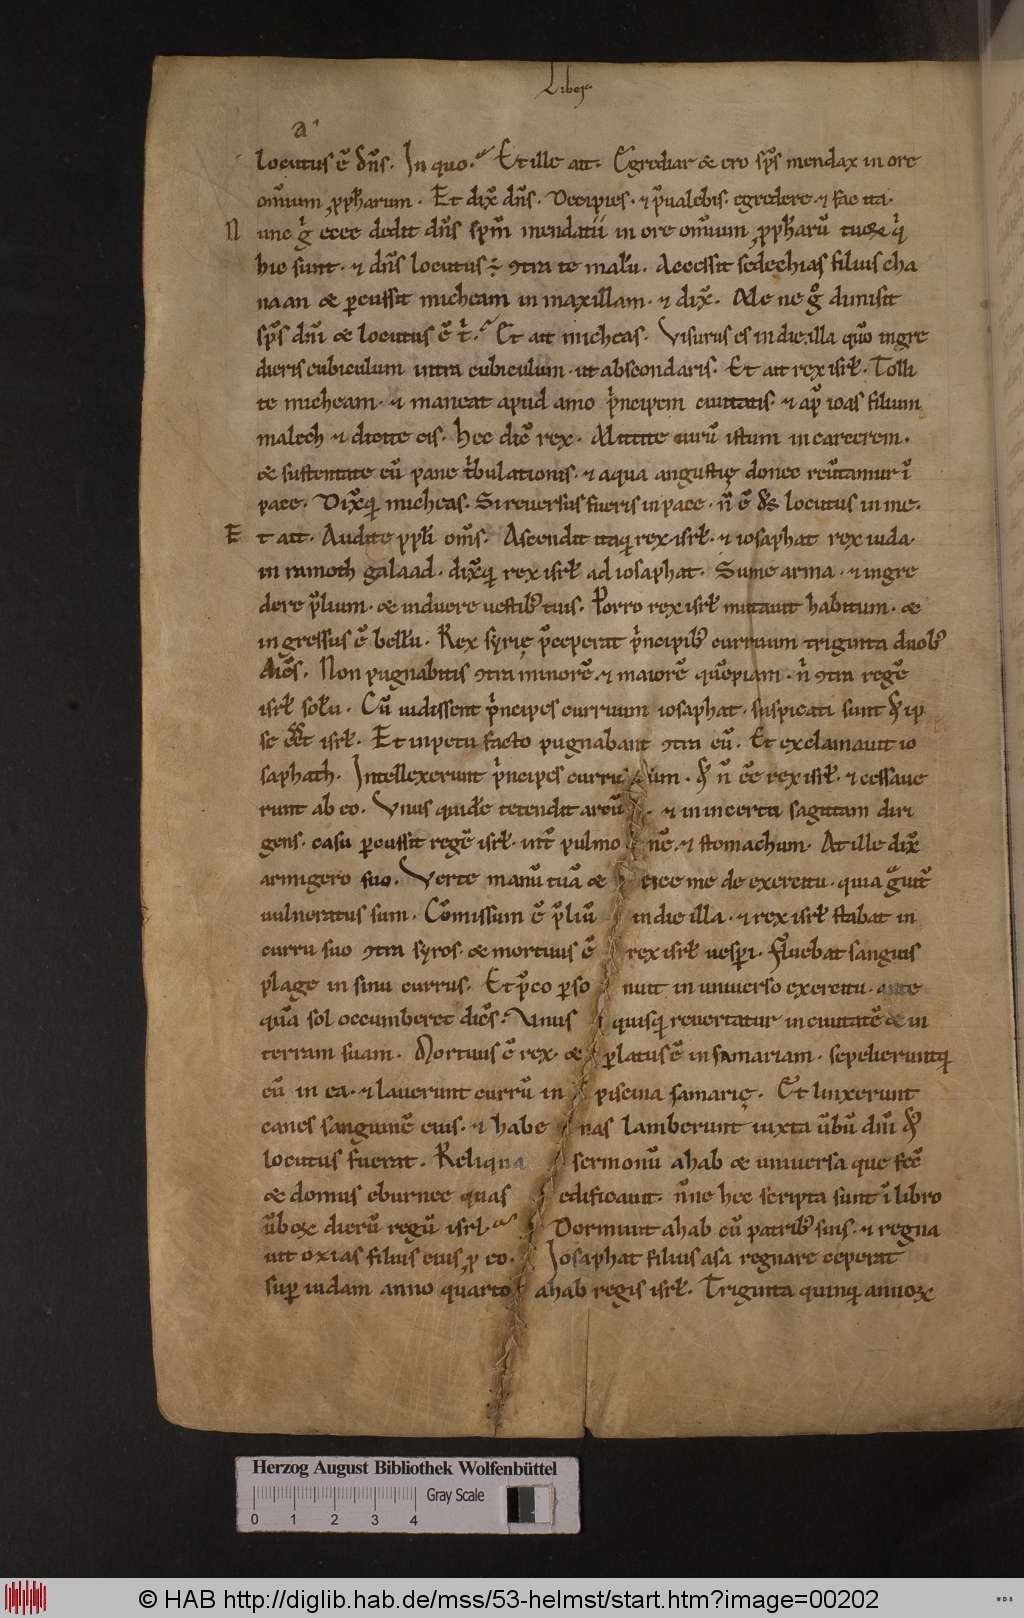 Liber
a
locutus ē dñs. In quo. Et ille ait. Egrediar & ero sp̄s mendax in ore
om̄ium ꝓph̄arum. Et dix̄ dñs. Decipies. ⁊ p̄ualebis. egredere. ⁊ fac ita.
N unc g̃ ecce dedit dñs sp̄m mendatii in ore om̄ium ꝓph̄arū tuoꝝ q̇
hic sunt. ⁊ dñs locutus ÷ ꝯtra te malū. Accessit sedechias filius cha
naan & ꝑcussit micheam in maxillam. ⁊ dix̄. Me ne g̊ dimisit
sp̄s dñi & locutus ē t̓. Et ait micheas. Visurus es in die illa qn̄o ingre
dieris cubiculum intra cubiculum. ut abscondaris. Et ait rex isrł. Tolli
te micheam. ⁊ maneat apud amo pͥncipem ciuitatis. ⁊ ap̄ ioas filium
malech ⁊ dicite eis. Hec dic̄ rex. Mittite uirū istum in carcerem.
& sustentate eū pane tͥbulationis. ⁊ aqua angustię donec reūtamur ī
pace. Dix̄q; micheas. Si reuersus fueris in pace. ñ ē ds̄ locutus in me.
E t ait. Audite ppłi om̄s. Ascendit itaq; rex isrł. ⁊ iosaphat rex iuda.
in ramoth galaad. dix̄q; rex isrł ad iosaphat. Sume arma. ⁊ ingre
dere p̄lium. & induere uestib; tuis. Porro rex isrł mutauit habitum. &
ingressus ē bellū. Rex syrię p̄ceperat pͥncipib; curruum triginta duob;
dicēs. Non pugnabitis ꝯtra minorē. ⁊ maiorē quēpiam. nͥ ꝯtra regē
isrł solū. Cū uidissent pͥncipes curruum iosaphat. suspicati sunt qd̄ ip
se eēt isrł. Et inpetu facto pugnabant ꝯtra eū. Et exclamauit io
saphath. Intellexerunt pͥncipes curruum. qd̄ ñ eē rex isrł. ⁊ cessaue
runt ab eo. Vnus quidē tetendit arcū. ⁊ in incertū sagittam diri
gens. casu ꝑcussit regē isrł. int̄ pulmonē. ⁊ stomachum. At ille dix̄
armigero suo. Verte manū tuā & eiece me de exercitu. quia g̃uit̄
uulneratus sum. Cōmissum ē p̄liū in die illa. ⁊ rex isrł stabat in
curru suo ꝯtra syros. & mortuus ē rex isrł uesperi. Fluebat sanguis
plage in sinu currus. Et p̄co ꝑsonuit in uniuerso exercitu. ante
quā sol occumberet dicēs. Vnus quisq; reuertatur in ciuitatē & in
terram suam. Mortuus ē rex. & ꝑlatus ē in samariam. sepelieruntq;
eū in ea. ⁊ lauerunt currū in piscina samarię. Et linxerunt
canes sanguinē eius. ⁊ habenas lamberunt iuxta ūbū dñi qd̄
locutus fuerat. Reliqua sermonū ahab & uniuersa que fec̄
& domus eburnee quas edificauit. ñne hec scripta sunt ī libro
ūboꝝ dierū regū isrl. Dormiuit ahab cū patrib; suis. ⁊ regna
uit oxias filius eius ꝓ eo. Iosaphat filius asa regnare ceperat
suꝑ iudam anno quarto ahab regis isrł. Triginta quinq; annoꝝ
Herzog August Bibliothek Wolfenbüttel
Gray Scale
0 1 2 3 4
© HAB http://diglib.hab.de/mss/53-helmst/start.htm?image=00202